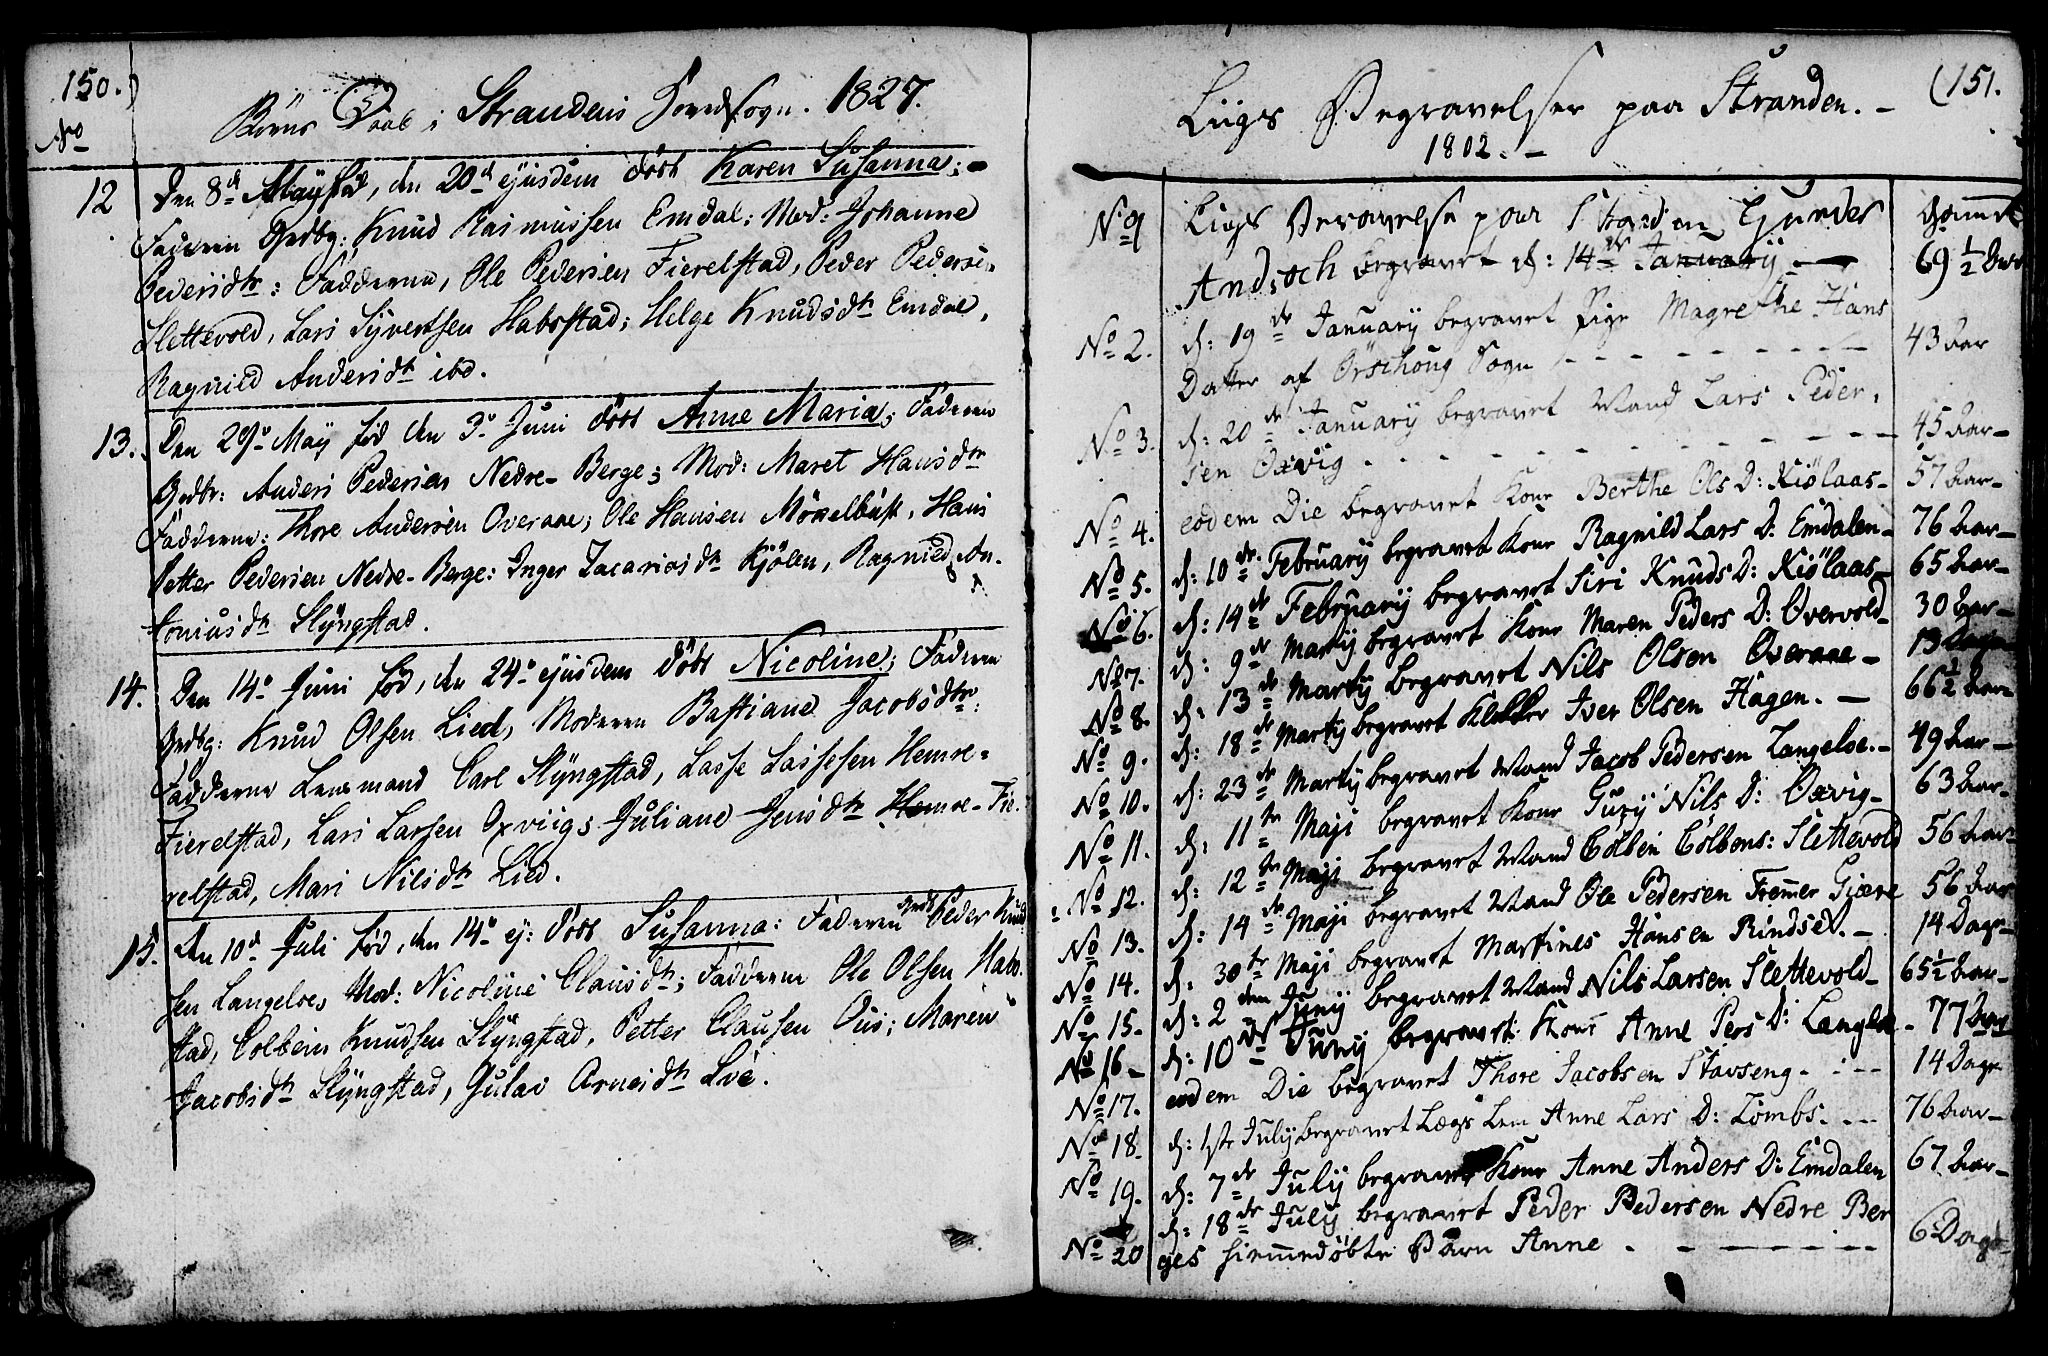 150.)
No
Børns Daab i Strandens Hovedsogn. 1827.
12 Den 8de May fød, den 20de ejusdem døbt Karen Susanna;
Faderen Grdbg: Knud Rasmussen Emdal; Mod: Johanne
Pedersdtr: Fadderne, Ole Pedersen Fierelstad, Peder Pedersen
Slettevold, Lars Syvertsen Habostad; Helge Knudsdtr Emdal,
Ragnild Andersdtr ibd.
13. Den 29de May fød den 3de Juni døbt Anne Maria; Faderen
Grdbr: Anders Pedersen Nedre-Berge; Mod: Maret Hansdtr
Fadderne: Thore Andersen Overaae; Ole Hansen Möxelbust, Hans
Petter Pedersen Nedre-Berge: Inger Zacariasdtr Kjölen, Ragnild An-
toniusdtr Slyngstad.
14. Den 14de Juni fød, den 24de ejusdem døbt Nicoline; Faderen
Grdbg: Knud Olsen Lied, Moderen Bastiane Jacobsdtr:
Fadderne Lensmand Carl Slyngstad, Lasse Lassesen Hemre-
Fierelstad, Lars Larsen Oxviig; Juliane Jensdtr Hemre-Fie-
relstad, Mari Nilsdtr Lied.
15. Den 10de Juli fød, den 14de ej: døbt Susanna: Faderen Grdb Peder Knud
sen Langeloe; Mod: Nicoline Clausdtr; Fadderne Ole Olsen Habo-
stad, Colbein Knudsen Slyngstad, Petter Clausen Ous; Maren
Jacobsdtr Slyngstad, Gulav Arnesdtr Lie.
(151.
Liigs Begravelser paa Stranden. -
1802. -
No 1 Liigs Beravelse paa Stranden Gundes Gamel
And: och begravet d: 14de January - 69 1/2 Aar
No 2. d: 19de January begravet Pige Magrethe Hans
Datter af Örschoug Sogn - - - 43 Aar
No 3. d: 20de January begravet Mand Lars Peder,
sen Oxvig - - - 45 Aar -
No 4. eodem Die begravet Kone Berthe Ols D: Kiölaas - 57 Aar -
No 5. d: 10de February begravet Kone Ragnild Lars D: Emdalen - 76 Aar -
No 6. d: 14de February begravet Siri Knuds D: Kiölaas - 65 Aar -
No 7. d: 9de Martij begravet Kone Maren Peders D: Overvold - 30 Aar -
No 8. d: 13de Martij begravet Nils Olsen Overaae - 13 Dage
No 9. d: 18de Martij begravet Klokker Iver Olsen Hagen. - 66 1/2 Aar
No 10. d: 23de Martij begravet Mand Jacob Pedersen Langeloe. - 49 Aar -
No 11. d: 11te Maji begravet Kone Gurj Nils D: Oxvig - 63 Aar -
No 12. d: 12te Maji begravet Mand Cölben Cölbens: Slettevold 56 Aar -
No 13. d: 14de Maji begravet Mand Ole Pedersen Fremmer Giære 56 Aar
No 14. d: 30te Maji begravet Martines Hansen Rindset. - 14 Dage -
No 15. d: 2den Juny begravet Mand Nils Larsen Slettevold - 65 1/2 Aar -
No 16 - d: 10de Juny begravet Kone Anne Pers D: Langloe - 77 Aar
No 17. eodem Die begravet Thore Jacobsen Stavseng. - 14 Dage
No 18. d: 1ste July begravet Lægs Lem Anne Lars D: Lömbs. - - 76 Aar -
No 19. d: 7de July begravet Kone Anne Anders D: Emdalen 67 Aar -
No 20 d: 18de July begravet Peder Pedersen Nedre Ber
ges hiemmedöbte Barn Anne - - - 6 Dage